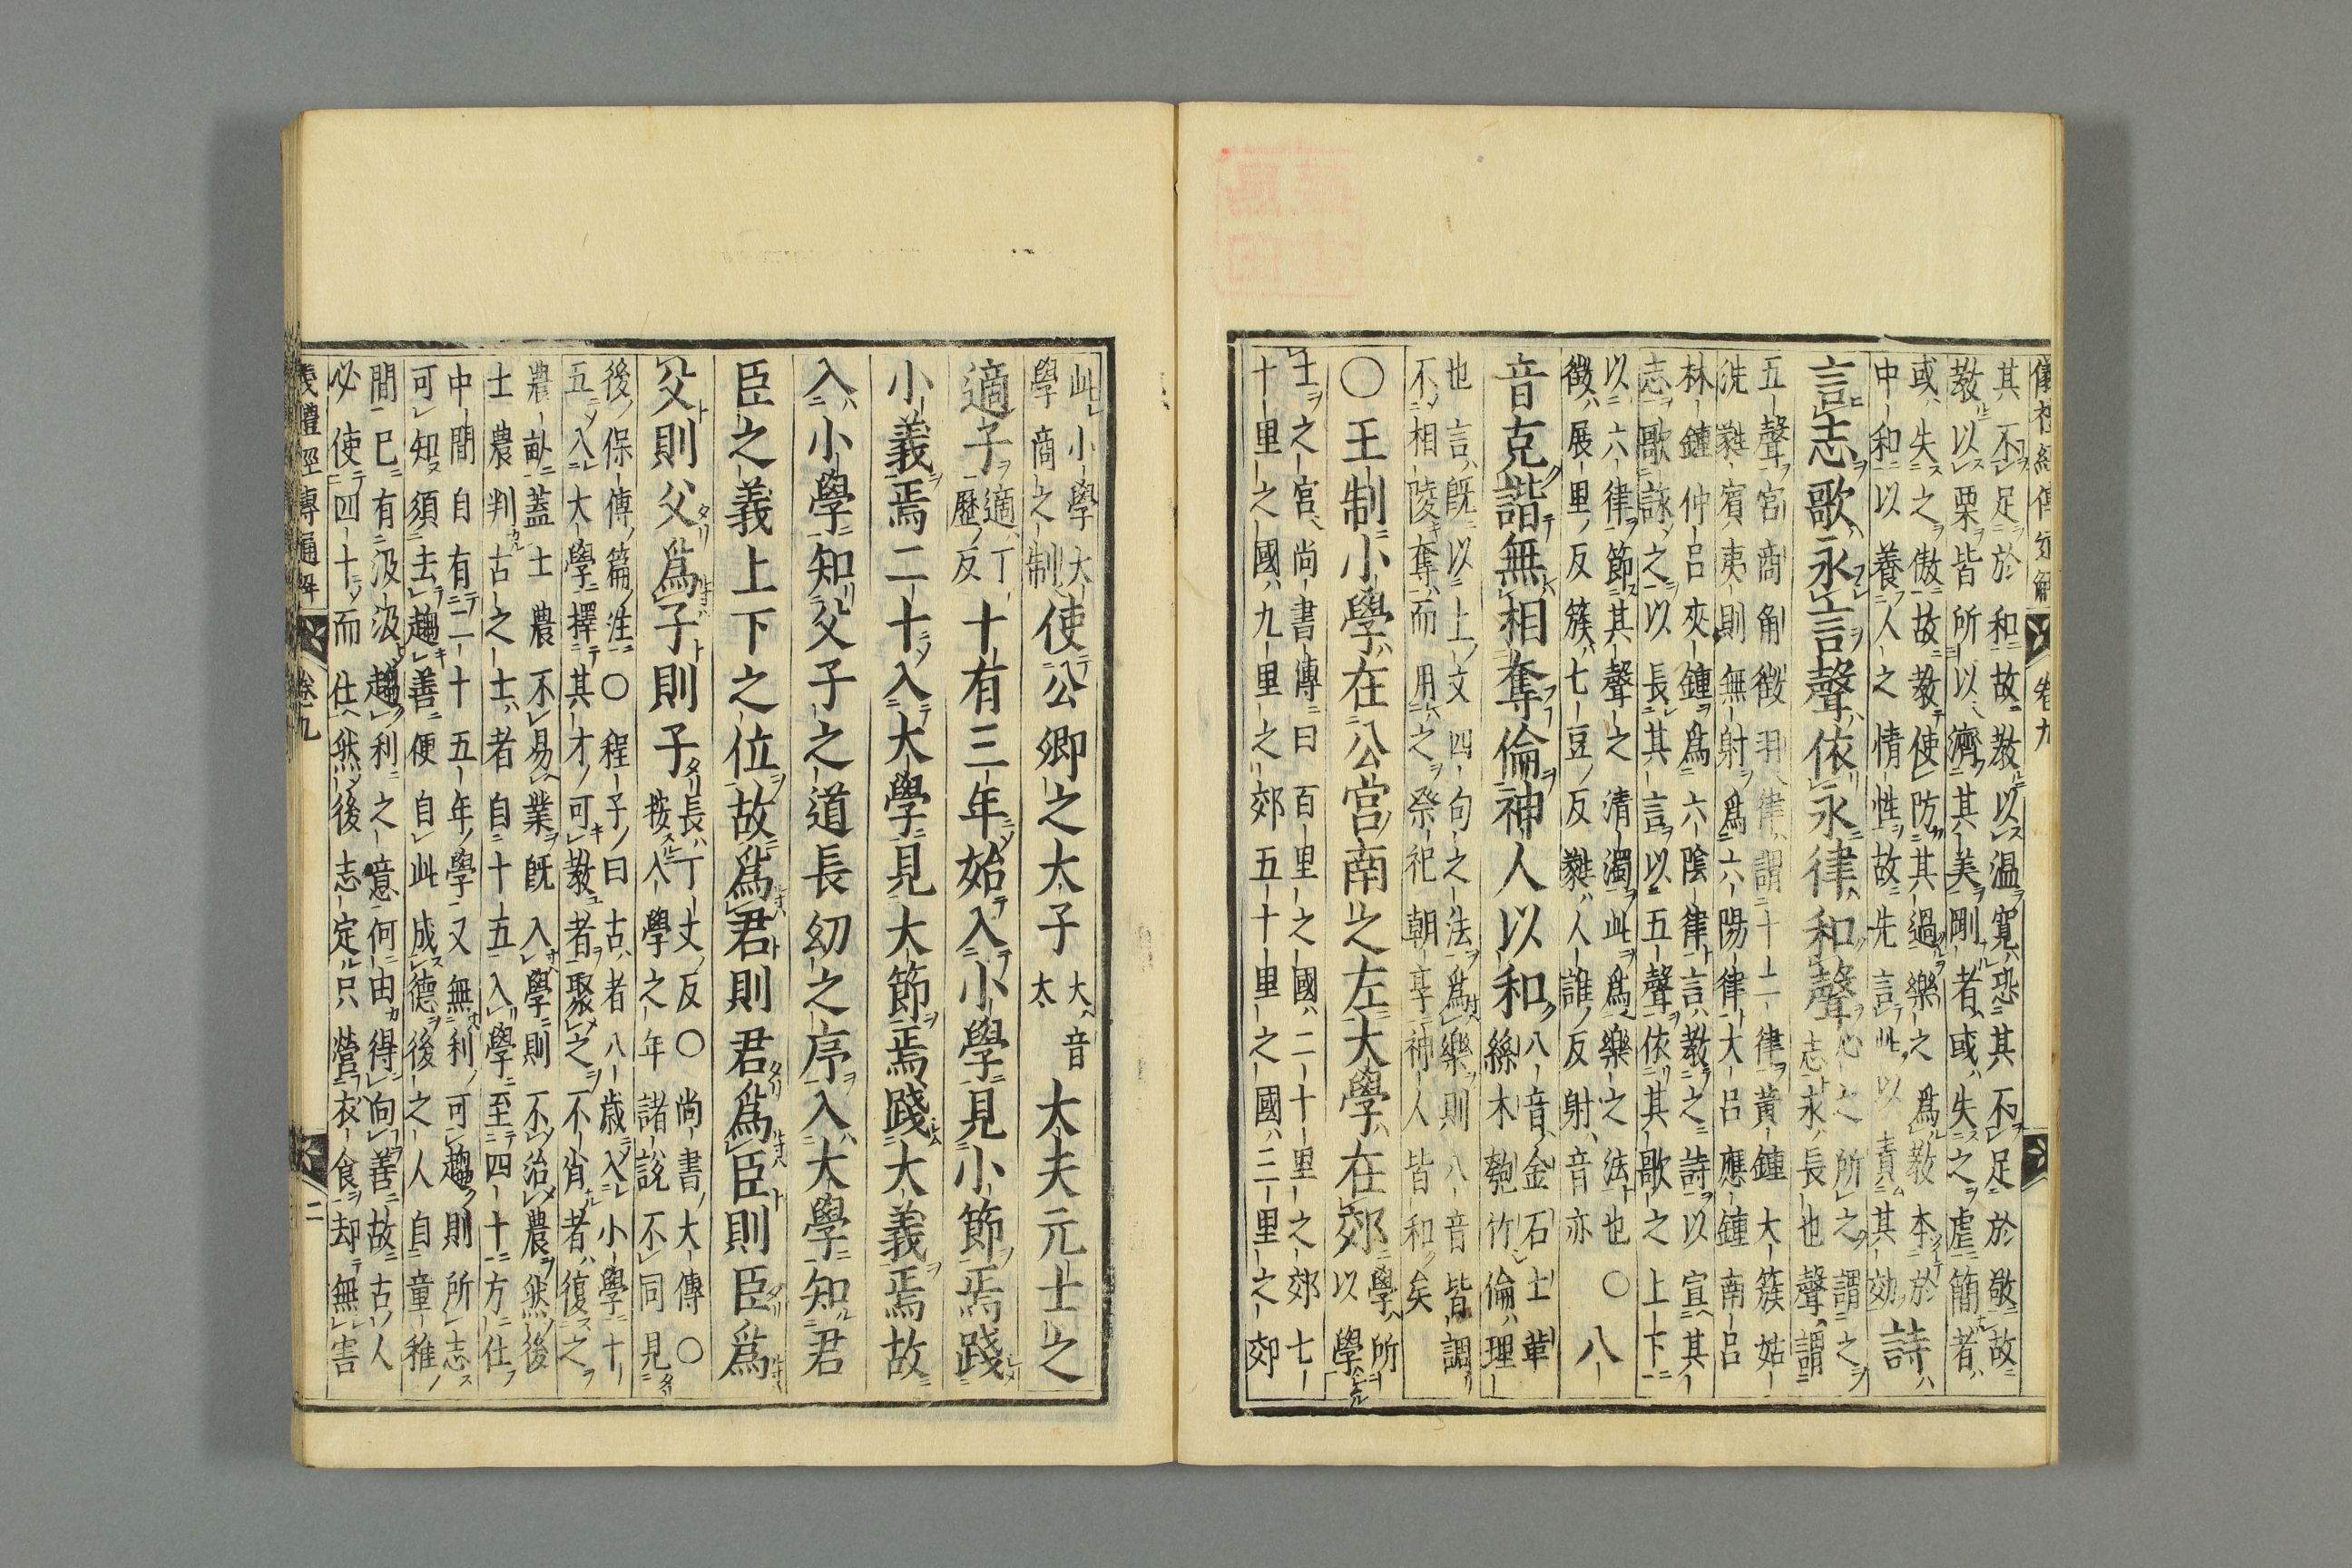 儀禮經傳通解 卷九
其不足於和故教以温寛恐其不足於敬故
教以栗皆所以濟其美剛者或失之虐簡者
或失之傲故教使防其過樂之爲教本於
中和以養人之情性故先言此以責其効詩
言志歌永言聲依永律和聲
心之所之謂之
志永長也聲謂
五聲宮商角徴羽律謂十二律黄鍾大簇姑
洗蕤賓夷則無射爲六陽律大呂應鍾南呂
林鍾仲呂夾鍾爲六陰律言教之詩以宣其
志歌詠之以長其言以五聲依其歌之上下
以六律節其聲之清濁此爲樂之法也〇
徴展里反簇七豆反蕤人誰反射音亦
八
音克諧無相奪倫神人以和
八音金石土革
絲木匏竹倫理
也言旣以上文四句之法爲樂則八音皆調
不相陵奪而用之祭祀朝享神人皆和矣
〇王制小學在公宮南之左大學在郊
學所以學
士之宮尚書傳曰百里之國二十里之郊七
十里之國九里之郊五十里之國三里之郊
此小學大
學商之制
使公卿之大子
大音
太
大夫元士之
適子
適丁
歷反
十有三年始入小學見小節焉踐
小義焉二十入大學見大節焉踐大義焉故
入小學知父子之道長幼之序入大學知君
臣之義上下之位故爲君則君爲臣則臣爲
父則父爲子則子
長丁丈反〇尚書大傳〇
按入學之年諸説不同見
後保傅篇注〇程子曰古者八歳入小學十
五入大學擇其才可教者聚之不肖者復之
農畝蓋士農不易業旣入學則不治農然後
士農判古之士者自十五入學至四十方仕
中間自有二十五年學又無利可趨則所志
可知須去趨善便自此成德後之人自童稚
間已有汲汲趨利之意何由得向善故古人
必使四十而仕然後志定只營衣食却無害
儀禮經傳通解 卷九 二